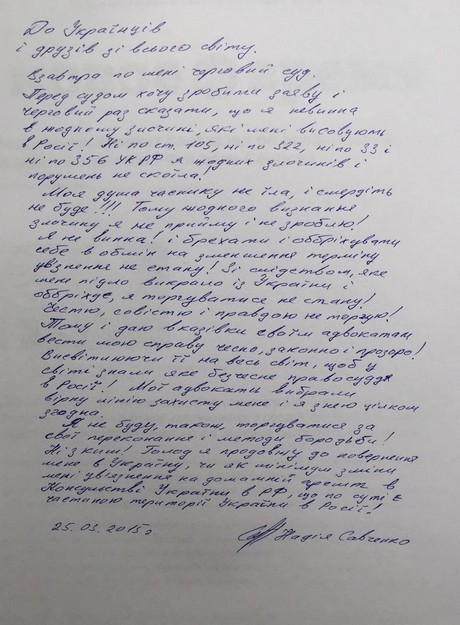 До Українців
і друзів зі всього світу.
Взавтра по мені черговий суд.
Перед судом хочу зробити заяву і
черговий раз сказати, що я невинна
в жодному злочині, які мені висовують
в Росії! Ні по ст. 105, ні по 322, ні по 33 і
ні по 356 УК РФ я жодних злочинів і
порушень не скоїла!
Моя душа часнику не їла, і смердіть
не буде!!! Тому жодного визнання
злочину я не прийму і не зроблю!
Я не винна! і брехати і оббріхувати
себе в обмін на зменшення терміну
ув'язнення не стану! Зі слідством, яке
мене підло викрало із України і
оббріхує, я торгуватися не стану!
Честю, совістю і правдою не торгую!
Тому і даю вказівки своїм адвокатам
вести мою справу чесно, законно і прозоро!
Висвітлюючи її на весь світ, щоб у
світі знали яке безчесне правосуддя
в Росії! Мої адвокати вибрали
вірну лінію захисту мене і я з нею цілком
згодна.
Я не буду, також, торгуватися за
свої переконання і методи боротьби!
Ні з ким! Голод я продовжу до повернення
мене в Україну, чи як мінімум зміни
мені ув'язнення на домашній арешт в
Консульстві України в РФ, що по суті є
частиною території України в Росії!
25.03.2015р Надія Савченко